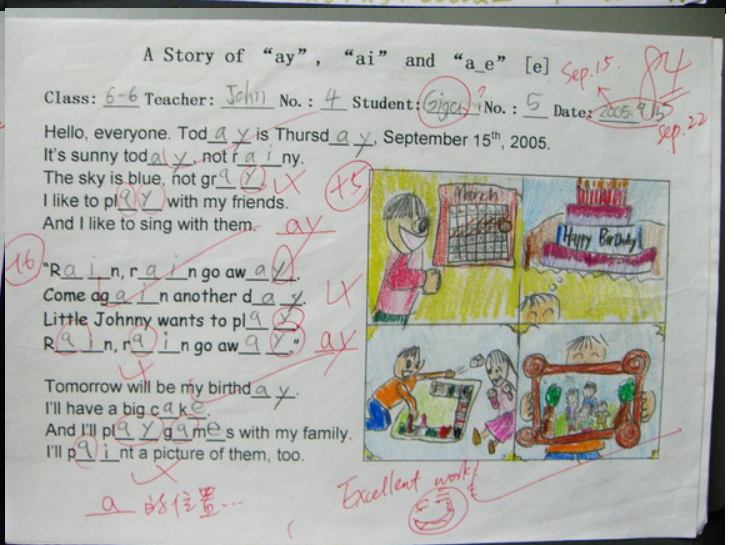 A Story of "ay", "ai" and "a_e" [e]
Sep.15. 84
Class: 6-6 Teacher: John No.: 4 Student: Giger ? No.: 5 Date: 2005.9.15
Sep.22
Hello, everyone. Today is Thursday, September 15th, 2005.
It's sunny today, not rainy.
The sky is blue, not gray.
I like to play with my friends.
And I like to sing with them. ay
+5
-16
"Rain, rain go away.
Come again another day.
Little Johnny wants to play.
Rain, rain go away." ay
Tomorrow will be my birthday.
I'll have a big cake.
And I'll play games with my family.
I'll paint a picture of them, too.
a 的位置...
March
Happy Birthday
Excellent work!